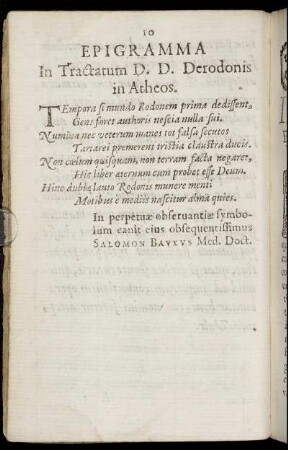 10
EPIGRAMMA
In Tractatum D. D. Derodonis
in Atheos.
TEmpora si mundo Rodonem prima dedissent,
Gens foret authoris nescia nulla sui.
Numina nec veterum manes tot falsa secutos
Tartarei premerent tristia claustra ducis.
Non cœlum quisquam, non terram facta negaret,
Hic liber æternum cum probet esse Deum.
Hinc dubiæ lauto Rodonis munere menti
Motibus è mediis nascitur alma quies.
In perpetuæ observantiæ symbo-
lum canit eius obsequentissimus
SALOMON BAVXVS Med. Doct.